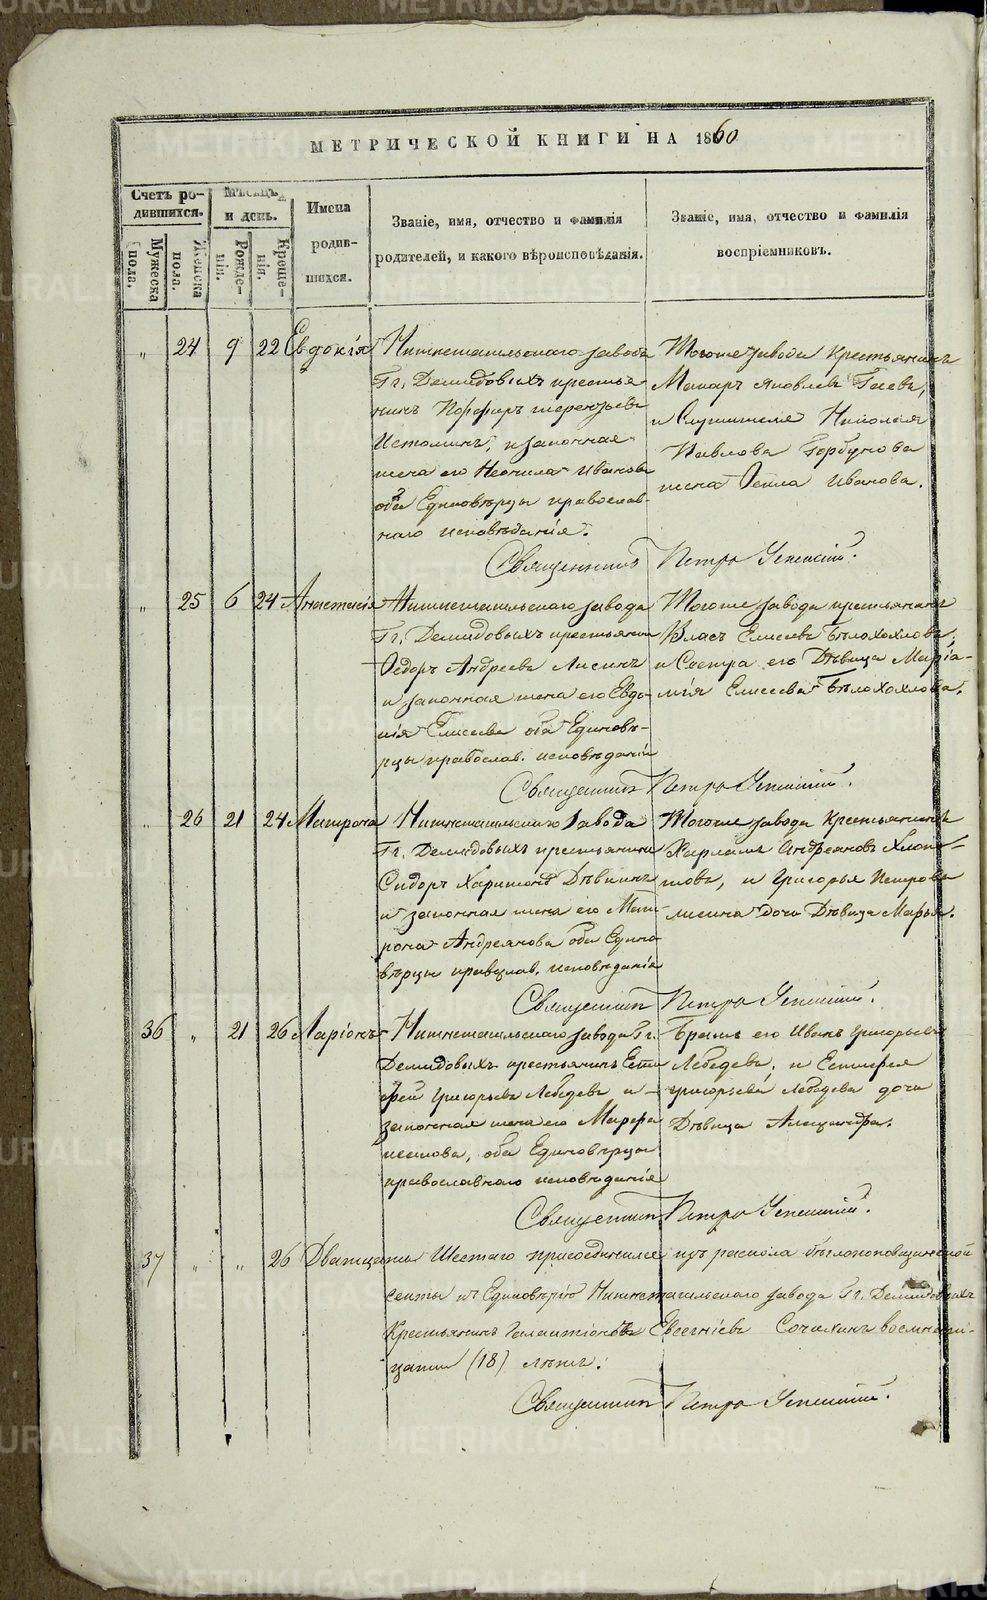 МЕТРИЧЕСКОЙ КНИГИ НА 1860
Счетъ ро-
дившихся.
Мѣсяцъ
и день.
Имена
родив-
шихся.
Званіе, имя, отчество и фамилія
родителей, и какого вѣроисповѣданія.
Званіе, имя, отчество и фамилія
воспріемниковъ.
Мужеска
пола.
Женска
пола.
Рожде-
нія.
Креще-
нія.
„ 24 9 22 Евдокія
Нижнетагильскаго завода
Гг. Демидовыхъ крестья
нинъ Порфиръ Терентьевъ
Истоминъ, и законная
жена его Неонила Иванова
оба Единовѣрцы православ-
наго исповѣданія.
Тогоже завода Крестьянинъ
Макаръ Яковлевъ Гаевъ,
и Служителя Николая
Павлова Горбунова
жена Фекла Иванова.
Священникъ Петръ Успенскій.
„ 25 6 24 Анастасія
Нижнетагильскаго завода
Гг. Демидовыхъ крестьянин
Федоръ Андреевъ Лисинъ
и законная жена его Евдо-
кія Елисеева оба Единовѣ-
рцы православ. исповѣданія
Тогоже завода крестьянинъ
Власъ Елисеевъ Бѣлохохловъ,
и Сестра его Дѣвица Маріа-
мія Елисеева Бѣлохохлова.
Священникъ Петръ Успенскій.
„ 26 21 24 Матрона
Нижнетагильскаго Завода
Гг. Демидовыхъ крестьянинъ
Сидоръ Харитоновъ Дѣвкинъ
и законная жена его Мат-
рона Андреянова оба Едино
вѣрцы православ. исповѣданія
Тогоже завода Крестьянинъ
Харлампъ Андреяновъ Хлопо-
товъ, и Григорья Петрова
Лисина дочь Дѣвица Марья.
Священникъ Петръ Успенскій.
36 „ 21 26 Ларіонъ
Нижнетагильскаго завода Гг.
Демидовыхъ крестьянинъ Ести
фей Григорьевъ Лебедевъ и
законная жена его Марфа
оба Единовѣрцы
православнаго исповѣданія
Братъ его Иванъ Григорьевъ
Лебедевъ, и Естифея
Григорьева Лебедева дочь
Дѣвица Александра.
Священникъ Петръ Успенскій.
37 „ „ 26 Дватцать Шестаго присоединился изъ раскола бѣглопоповщинской
секты къ Единовѣрію Нижнетагильскаго завода Гг. Демидовыхъ
Крестьянинъ Галактіонъ Евгеніевъ восмнат-
цати (18) лѣтъ.
Священникъ Петръ Успенскій.
METRIKI.GASO-URAL.RU